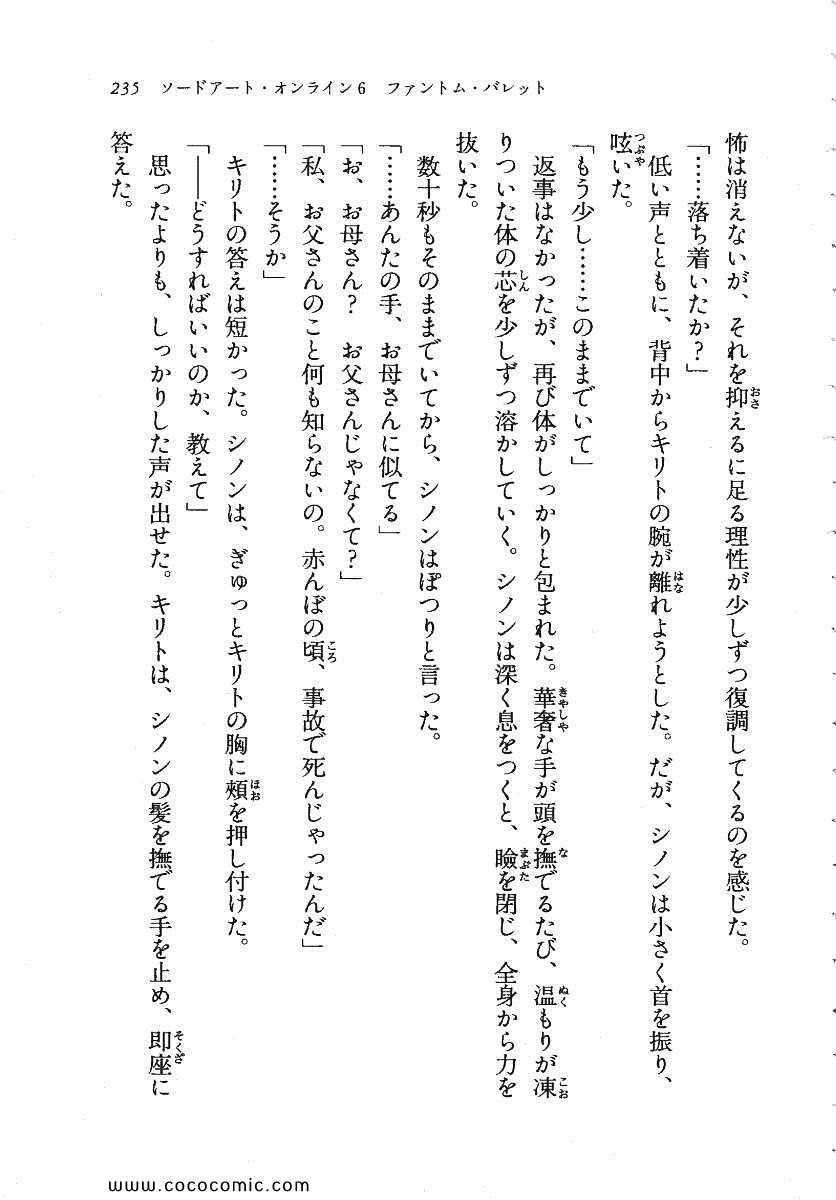 235　ソードアート・オンライン6　ファントム・バレット
怖は消えないが、それを抑えるに足る理性が少しずつ復調してくるのを感じた。
「……落ち着いたか？」
低い声とともに、背中からキリトの腕が離れようとした。だが、シノンは小さく首を振り、
呟いた。
「もう少し……このままでいて」
返事はなかったが、再び体がしっかりと包まれた。華奢な手が頭を撫でるたび、温もりが凍
りついた体の芯を少しずつ溶かしていく。シノンは深く息をつくと、瞼を閉じ、全身から力を
抜いた。
数十秒もそのままでいてから、シノンはぽつりと言った。
「……あんたの手、お母さんに似てる」
「お、お母さん？　お父さんじゃなくて？」
「私、お父さんのこと何も知らないの。赤んぼの頃、事故で死んじゃったんだ」
「……そうか」
キリトの答えは短かった。シノンは、ぎゅっとキリトの胸に頰を押し付けた。
「――どうすればいいのか、教えて」
思ったよりも、しっかりした声が出せた。キリトは、シノンの髪を撫でる手を止め、即座に
答えた。
www.cococomic.com